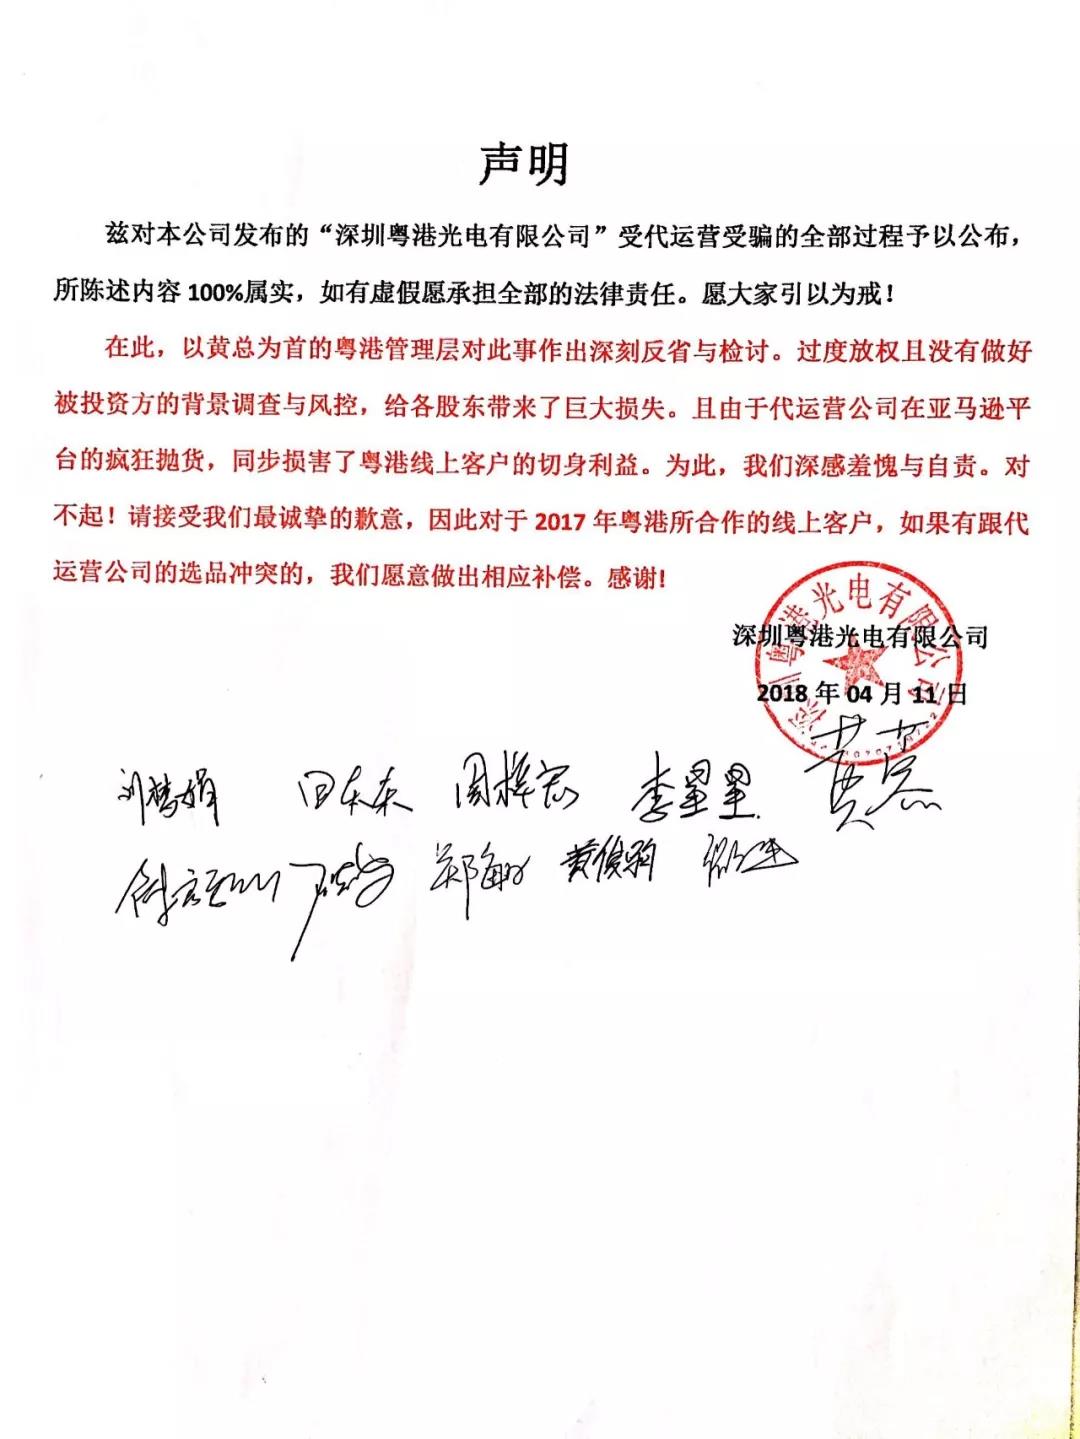 声明
兹对本公司发布的“深圳粤港光电有限公司”受代运营受骗的全部过程予以公布，
所陈述内容100%属实，如有虚假愿承担全部的法律责任。愿大家引以为戒！
在此，以黄总为首的粤港管理层对此事作出深刻反省与检讨。过度放权且没有做好
被投资方的背景调查与风控，给各股东带来了巨大损失。且由于代运营公司在亚马逊平
台的疯狂抛货，同步损害了粤港线上客户的切身利益。为此，我们深感羞愧与自责。对
不起！请接受我们最诚挚的歉意，因此对于2017年粤港所合作的线上客户，如果有跟代
运营公司的选品冲突的，我们愿意做出相应补偿。感谢!
深圳粤港光电有限公司
深圳粤港光电有限公司
2018年04月11日
李星星
黄俊驹